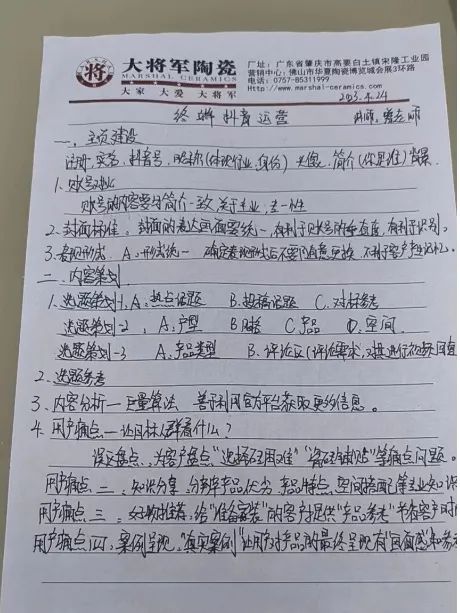 将
大将军陶瓷
MARSHAL CERAMICS
大家 大爱 大将军
厂址：广东省肇庆市高要白土镇宋隆工业园
营销中心：佛山市华夏陶瓷博览城会展3环路
电话：0757-85311999
Http://www.marshal-ceramics.com
2023.4.24
终端抖音运营
一、主页建设
注册，实名，抖音号，昵称(体现行业,身份) 头像，简介(你是谁) 背景
1.账号对比
账号的内容要与简介一致，关于专业，专一性
2.封面标准，封面的表达画面要统一，有利于账号的垂直度，有利于识别。
3.表现形式，A:形式统一 确定表现形式后不要随意更换，不利于客户的记忆。
二、内容策划
1.选题策划-1，A:热点话题 B.投稿话题 C.对标参考
选题策划-2，A:户型 B.风格 C.产品 D.空间
选题策划-3 A.产品类型 B.评论区(评论需求，对其进行视频回复
2.选题参考
3.内容分析一巨量算法 善于利用官方平台获取更多信息。
4.用户痛点一让目标人群看什么？
误区盘点，为客户盘点"选择困难""瓷砖铺贴"等痛点问题。
用户痛点二，知识分享，分辨产品优劣，产品特点，空间搭配等专业知识
用户痛点三，好物推荐，给"准备家装"的客户提供"产品参考"
用户痛点四，案例呈现，"真实案例"让用户对产品的最终呈现有"画面感"和参考